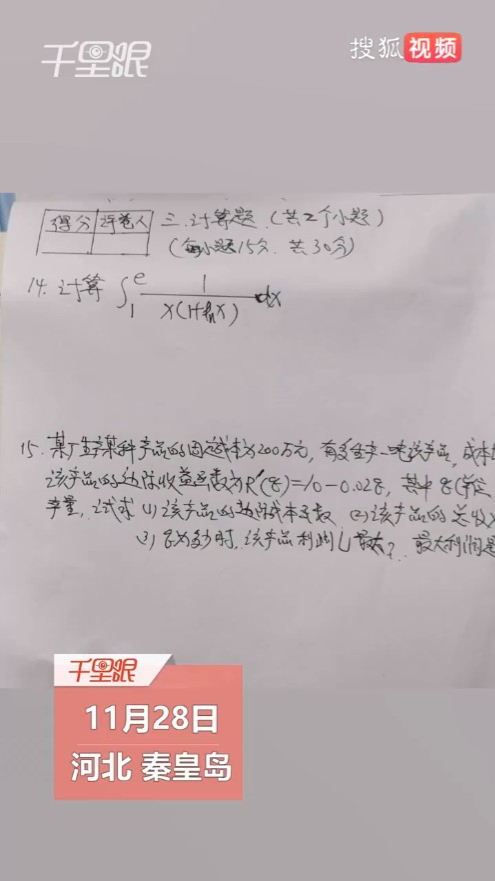 千里眼
搜狐视频
得分 评卷人 三.计算题.(共2个小题)
(每小题15分.共30分)
14.计算 ∫₁ᵉ 1/x(1+lnx) dx
15.某厂生产某种产品的固定成本为200万元,有多生产一吨该产品,成本
该产品的边际收益函数为R′(q)=10-0.02q,其中q(单位
产量,试求(1)该产品的边际成本函数 (2)该产品的总收
(3)q为多少时,该产品利润L最大?最大利润是
千里眼
11月28日
河北 秦皇岛